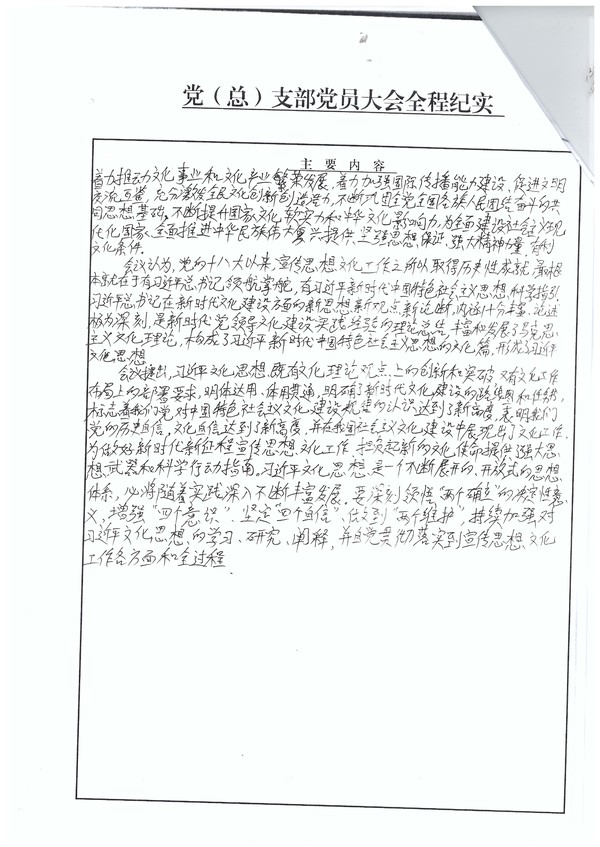 党（总）支部党员大会全程纪实
主要内容
着力推动文化事业和文化产业繁荣发展，着力加强国际传播能力建设、促进文明
交流互鉴，充分激发全民文化创新创造活力，不断巩固全党全国各族人民团结奋斗的共
同思想基础，不断提升国家文化软实力和中华文化影响力，为全面建设社会主义现
代化国家、全面推进中华民族伟大复兴提供坚强思想保证、强大精神力量、有利
文化条件。
会议认为，党的十八大以来，宣传思想文化工作之所以取得历史性成就，最根
本就在于有习近平总书记领航掌舵，有习近平新时代中国特色社会主义思想科学指引。
习近平总书记在新时代文化建设方面的新思想新观点新论断，内涵十分丰富、论述
极为深刻，是新时代党领导文化建设实践经验的理论总结，丰富和发展了马克思
主义文化理论，构成了习近平新时代中国特色社会主义思想的文化篇，形成了习近平
文化思想
会议提出，习近平文化思想既有文化理论观点上的创新和突破，又有文化工作
布局上的部署要求，明体达用、体用贯通，明确了新时代文化建设的路线图和任务书，
标志着我们党对中国特色社会主义文化建设规律的认识达到了新高度，表明我们
党的历史自信、文化自信达到了新高度，并在我国社会主义文化建设中展现出了文化工作，
为做好新时代新征程宣传思想文化工作、担负起新的文化使命提供了强大思
想武器和科学行动指南。习近平文化思想是一个不断展开的、开放式的思想
体系，必将随着实践深入不断丰富发展。要深刻领悟“两个确立”的决定性意
义，增强“四个意识”、坚定“四个自信”、做到“两个维护”，持续加强对
习近平文化思想的学习、研究、阐释，并自觉贯彻落实到宣传思想文化
工作各方面和全过程